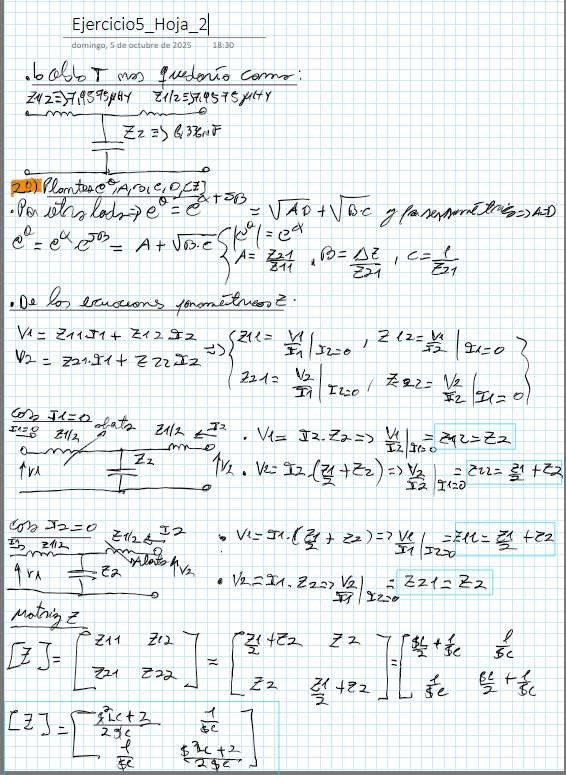 Ejercicio5_Hoja_2
domingo, 5 de octubre de 2025 18:30
. T nos quedaría como:
Z1/2=>7,9575μHy Z1/2=>7,9575μHy
Z2 =>
2º) Plantea e^θ, A, B, C, D, [Z]
e^θ = e^(α+jβ) = √AD + √B·C y por ser simétrico => A=D
e^θ = e^α e^(jβ) = A + √B·C { |e^θ| = e^α
A = Z21/Z11 , B = ΔZ/Z21 , C = 1/Z21
. De las ecuaciones paramétricas Z.
V1 = Z11 I1 + Z12 I2
V2 = Z21·I1 + Z22 I2
=> { Z11 = V1/I1 | I2=0 , Z12 = V1/I2 | I1=0
Z21 = V2/I1 | I2=0 , Z22 = V2/I2 | I1=0 }
con I1=0
I1=0 Z1/2 abierto Z1/2 I2
V1 Z2 V2
. V1 = I2·Z2 => V1/I2 | I1=0 = Z12 = Z2
. V2 = I2·(Z1/2 + Z2) => V2/I2 | I1=0 = Z22 = Z1/2 + Z2
con I2=0
I1 Z1/2 Z1/2 I2
V1 Z2 abierto V2
. V1 = I1·(Z1/2 + Z2) => V1/I1 | I2=0 = Z11 = Z1/2 + Z2
. V2 = I1·Z2 => V2/I1 | I2=0 = Z21 = Z2
Matriz Z
[Z] = [Z11 Z12; Z21 Z22] = [Z1/2 + Z2 Z2; Z2 Z1/2 + Z2] = [$L/2 + 1/$C 1/$C; 1/$C $L/2 + 1/$C]
[Z] = [($²LC + 2)/(2$C) 1/$C; 1/$C ($²LC + 2)/(2$C)]